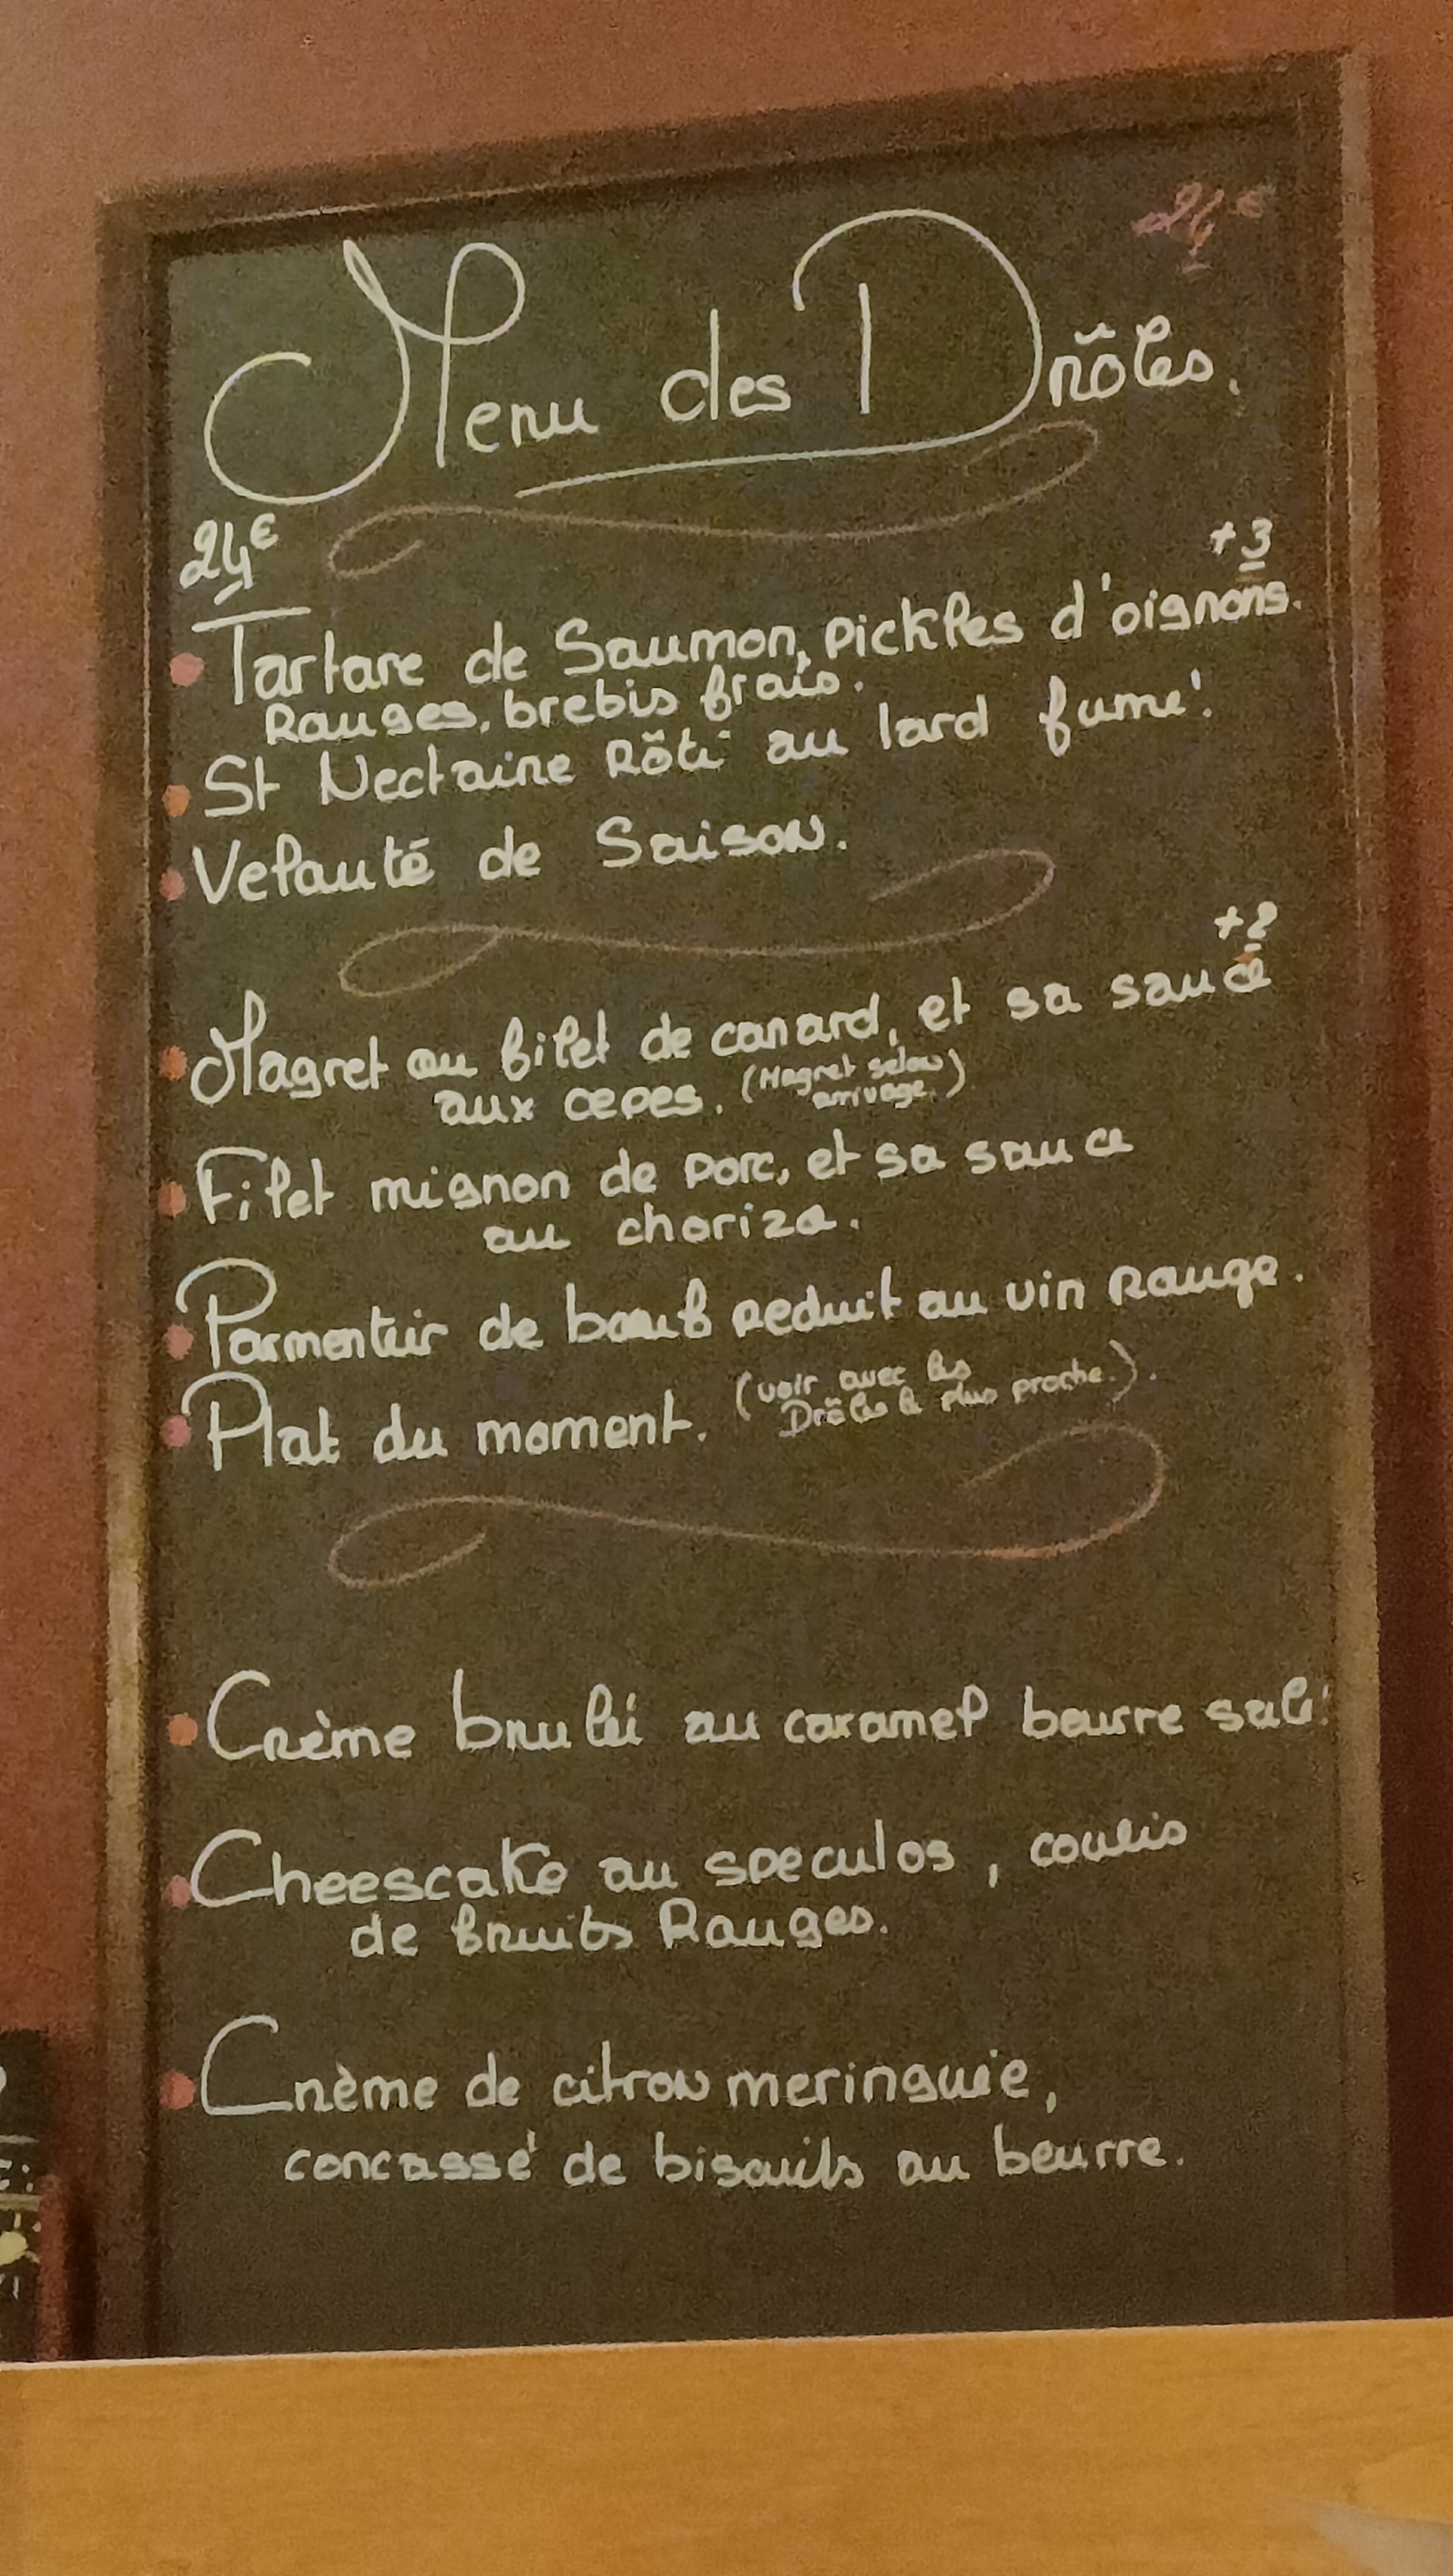 24€
Menu des Drôles.
24€
+3
Tartare de Saumon, pickles d'oignons.
Rouges, brebis frais.
St Nectaire Rôti au lard fumé.
Velouté de Saison.
+2
Magret ou filet de canard, et sa sauce
aux cepes. (Magret selon
arrivage.)
Filet mignon de porc, et sa sauce
au chorizo.
Parmentier de boeuf reduit au vin Rouge.
Plat du moment. (voir avec les
Drôles le plus proche.).
Crème brulée au caramel beurre salé.
Cheescake au speculos, coulis
de fruits Rouges.
Crème de citron meringuée,
concassé de biscuits au beurre.